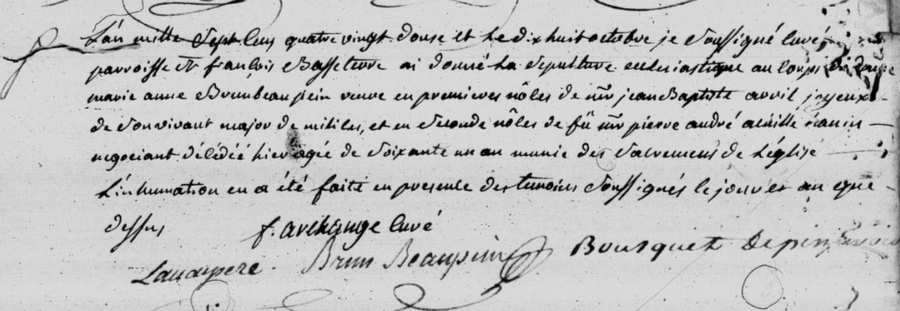 L'an mille Sept Cens quatre vingt douse et le dix huit octobre je Soussigné Curé
parroisse St françois Basseterre ai donné La Sepulture ecclesiastique au Corps de
marie anne Brunbeaupein veuve en premieres nôces de mr. jean Baptiste avril
de Son vivant major de milices, et en Seconde nôces de fû mr. pierre andré achille
negociant. décédée hier agée de Soixante un an munie des Sacremens de L'église
L'inhumation en a été faite en presence des temoins Soussignés le jour et an que
dessus f. archange Curé
Brun Beaupein Bousquet